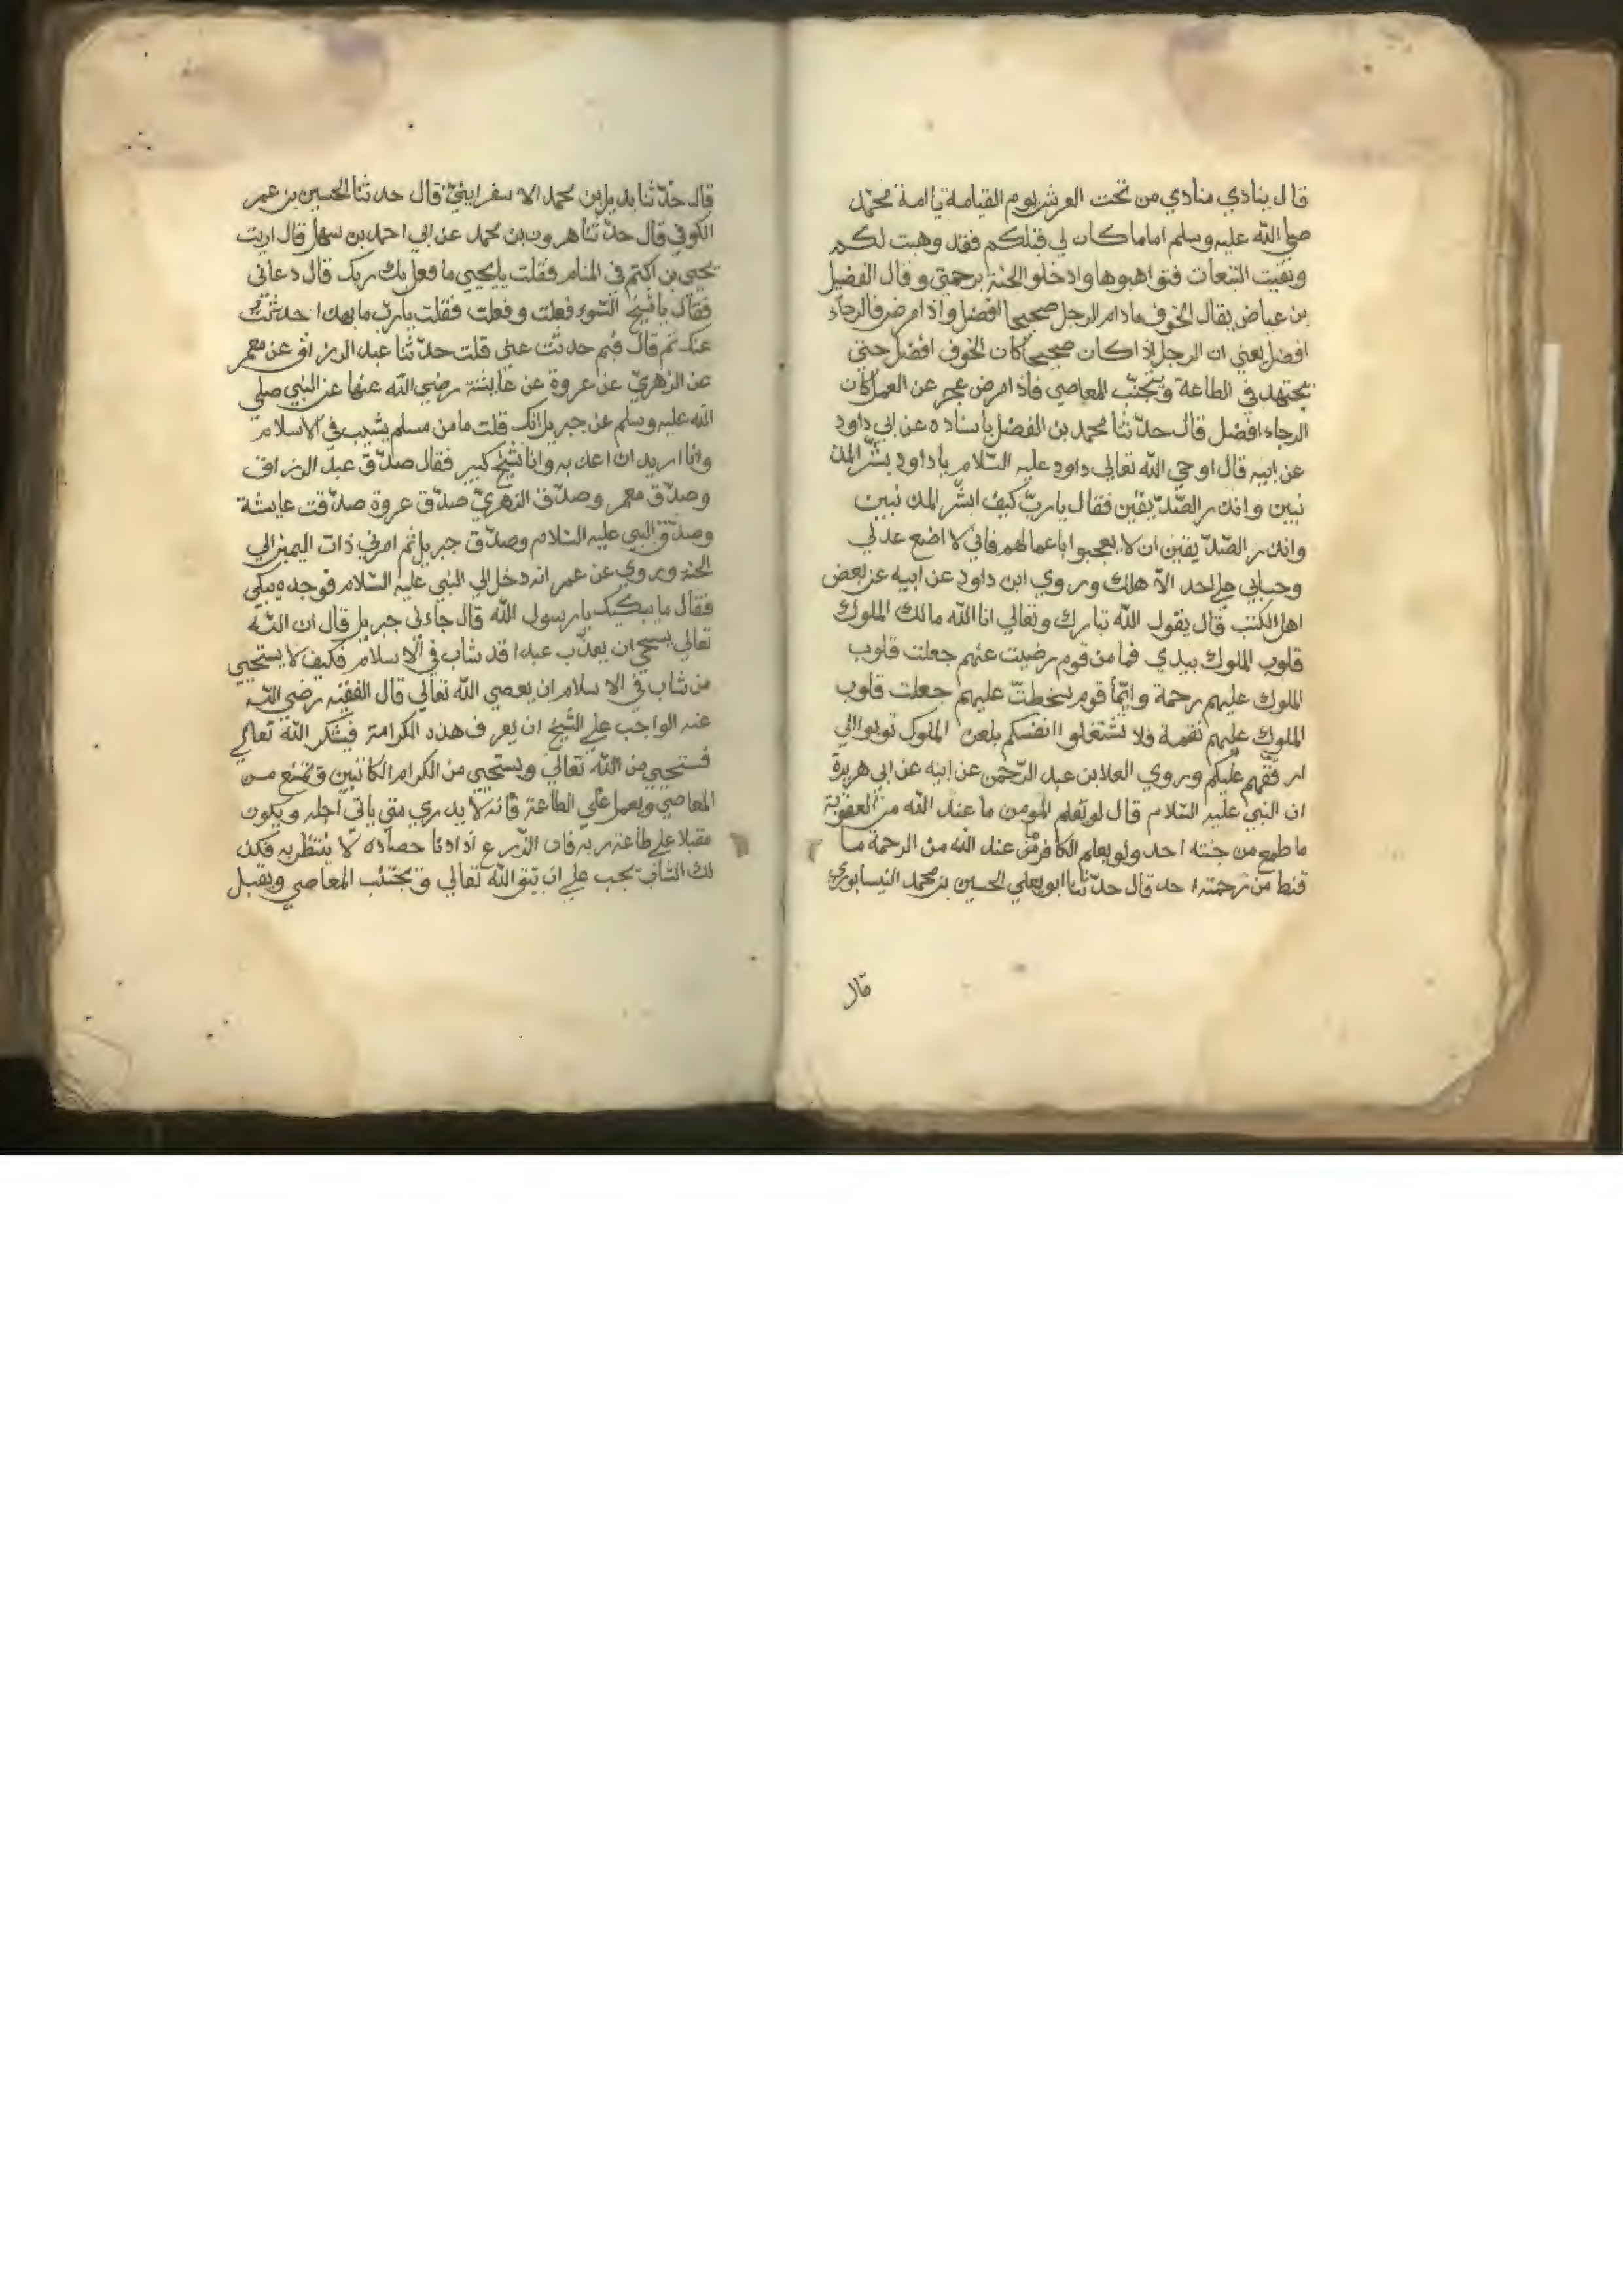 قال ينادي منادي من تحت العرش يوم القيامة يا امة محمد
صلي الله عليه وسلم اما ما كان لي قبلكم فقد وهبت لكم
وبقيت التبعات فتواهبوها وادخلو الجنة برحمتي وقال الفضيل
بن عياض يقال الخوف مادام الرجل صحيحا افضل واذا مرض فالرجاء
افضل يعني ان الرجل اذا كان صحيحا كان الخوف افضل حتي
يجتهد في الطاعة ويجتنب المعاصي فاذا مرض عجز عن العمل كان
الرجاء افضل قال حدّثنا محمد بن الفضل باسناده عن ابي داود
عن ابيه قال اوحي الله تعالي داود عليه السّلام يا داود بشّر المذ
نبين وانذر الصّدّيقين فقال يا ربّ كيف ابشّر المذنبين
وانذر الصّدّيقين ان لا يعجبوا باعمالهم فاني لا اضع عدلي
وحسابي علي احد الاّ هلك وروي ابن داود عن ابيه عن بعض
اهل الكتب قال يقول الله تبارك وتعالي انا الله مالك الملوك
قلوب الملوك بيدي فما من قوم رضيت عنهم جعلت قلوب
الملوك عليهم رحمة وايّما قوم سخطتّ عليهم جعلت قلوب
الملوك عليهم نقمة فلا تشتغلوا انفسكم بلعن الملوك توبوا الي
ارققهم عليكم وروي العلا بن عبد الرّحمن عن ابيه عن ابي هريرة
ان النبي عليه السّلام قال لو تعلم المومن ما عند الله من العقوبة
ما طمع من جنته احد ولو يعلم الكافر ما عند الله من الرحمة ما
قنط من رحمته احد قال حدّثنا ابو يعلي الحسين بن محمد النيسابوري
قال
قال حدّثنا بديل بن محمد الاسفرايني قال حدثنا الحسين بن عمر
الكوفي قال حدّثنا هرون بن محمد عن ابي احمد بن سهل قال اريت
يحيي بن اكثم في المنام فقلت يا يحيي ما فعل بك ربك قال دعاني
فقال يا شيخ السّوء فعلت وفعلت فقلت يا ربّ ما بهذا حدثت
عنك ثم قال فبم حدثت عني قلت حدّثنا عبد الرزاق عن معمر
عن الزهريّ عن عروة عن عايشة رضي الله عنها عن النبي صلي
الله عليه وسلم عن جبريل انك قلت ما من مسلم يشيب في الاسلام
وانا اريد ان اعذبه وانا شيخ كبير فقال صدّق عبد الرزاق
وصدّق معمر وصدّق الزهريّ صدّق عروة صدّقت عايشة
وصدّق النبي عليه السّلام وصدّق جبريل ثم امرني ذات اليمين الي
الجنة وروي عن عمر انه دخل الي النبي عليه السّلام فوجده يبكي
فقال ما يبكيك يا رسول الله قال جاءني جبريل قال ان الله
تعالي يستحي ان يعذّب عبدا قد شاب في الاسلام فكيف لا يستحيي
من شاب في الاسلام ان يعصي الله تعالي قال الفقيه رضي الله
عنه الواجب علي الشّيخ ان يعرف هذه الكرامة فيشكر الله تعالي
فستحيي من الله تعالي ويستحيي من الكرام الكاتبين وتمتنع من
المعاصي ويعمل علي الطاعة فانه لا يدري متي ياتي اجله ويكون
مقبلا علي طاعة ربه فان الزّرع اذا دنا حصاده لا ينتظر به فكذ
لك الشّاب يجب علي ان يتق الله تعالي ويجتنب المعاصي ويقبل